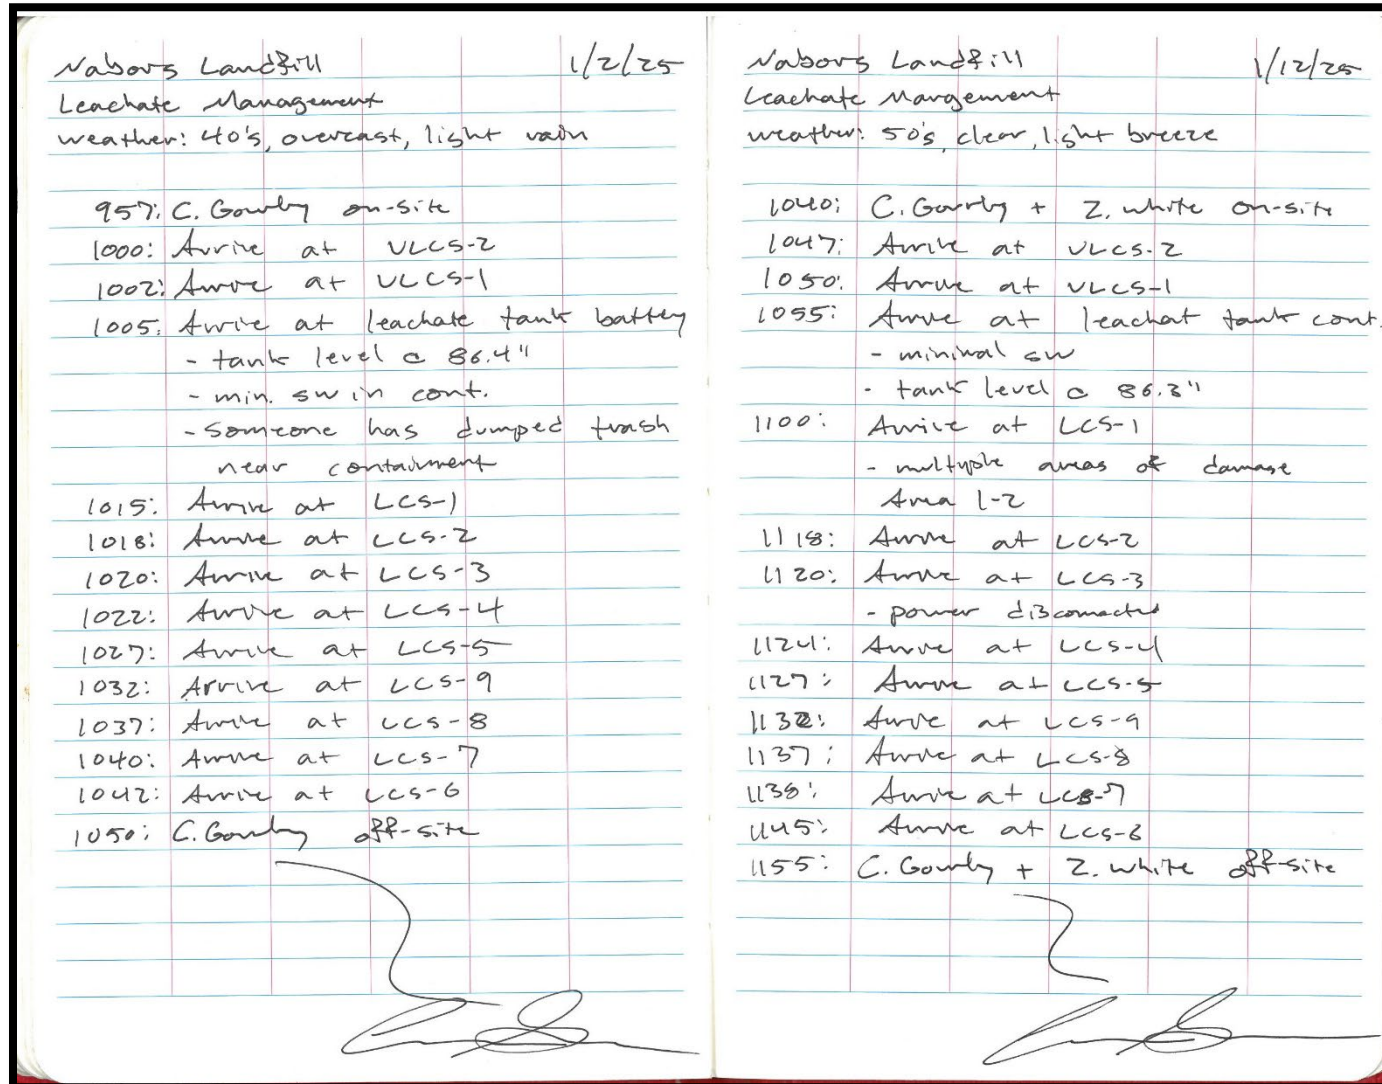 Nabors Landfill 1/2/25
Leachate Management
weather: 40's, overcast, light rain
957: C. Gourley on-site
1000: Arrive at VLCS-2
1002: Arrive at VLCS-1
1005: Arrive at leachate tank battery
- tank level @ 86.4"
- min. sw in cont.
- someone has dumped trash
near containment
1015: Arrive at LCS-1
1018: Arrive at LCS-2
1020: Arrive at LCS-3
1022: Arrive at LCS-4
1027: Arrive at LCS-5
1032: Arrive at LCS-9
1037: Arrive at LCS-8
1040: Arrive at LCS-7
1042: Arrive at LCS-6
1050: C. Gourley off-site
Nabors Landfill 1/12/25
Leachate Mangement
weather: 50's, clear, light breeze
1040: C. Gourley + Z. White on-site
1047: Arrive at VLCS-2
1050: Arrive at VLCS-1
1055: Arrive at leachat tank cont.
- minimal sw
- tank level @ 86.3"
1100: Arrive at LCS-1
- multiple areas of damage
Area 1-2
1118: Arrive at LCS-2
1120: Arrive at LCS-3
- power disconnected
1124: Arrive at LCS-4
1127: Arrive at LCS-5
1132: Arrive at LCS-9
1137: Arrive at LCS-8
1138: Arrive at LCS-7
1145: Arrive at LCS-6
1155: C. Gourley + Z. White off-site